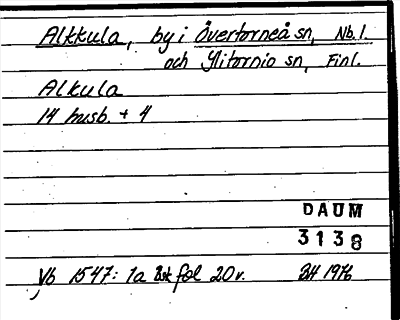 Alkkula, by i Övertorneå sn, Nb.l.
och Ylitornio sn, Finl.
Alkula
14 husb. + 4
DAUM
3138
Vb 1547: 1a fol 20v. 1976